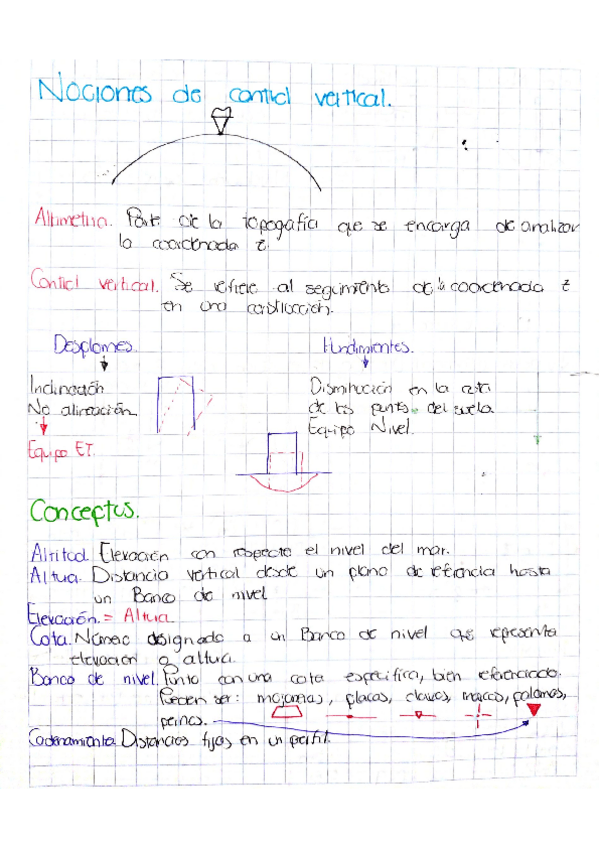 Nociones de control vertical.
Altimetria. Parte de la topografía que se encarga de analizar
la coordenada z
Control vertical. Se refiere al seguimiento de la coordenada z
en una construccion.
Desplomes. Hundimientos.
Inclinación Disminución en la cota
No alineación de los puntos del suelo
Equipo Nivel.
Equipo ET.
Conceptos.
Altitud. Elevación con respecto el nivel del mar.
Altura. Distancia vertical desde un plano de referencia hasta
un Banco de nivel
Elevación. = Altura
Cota. Número designado a un Banco de nivel que representa
elevación o altura.
Banco de nivel. Punto con una cota especifica, bien referenciado.
Pueden ser: mojoneras, placas, clavos, marcas, palomas,
Cadenamiento. Distancias fijas en un perfil.